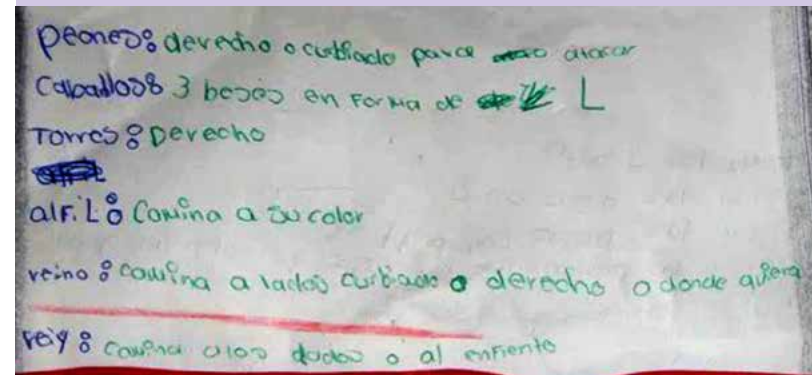 peones: derecho o curbiado para atacar
Caballos: 3 beses en forma de L
Torres: Derecho
alfil: Camina a su color
reino: camina a lados curbiado o derecho o donde quiera
reiy: camina alos dados o al enfiento